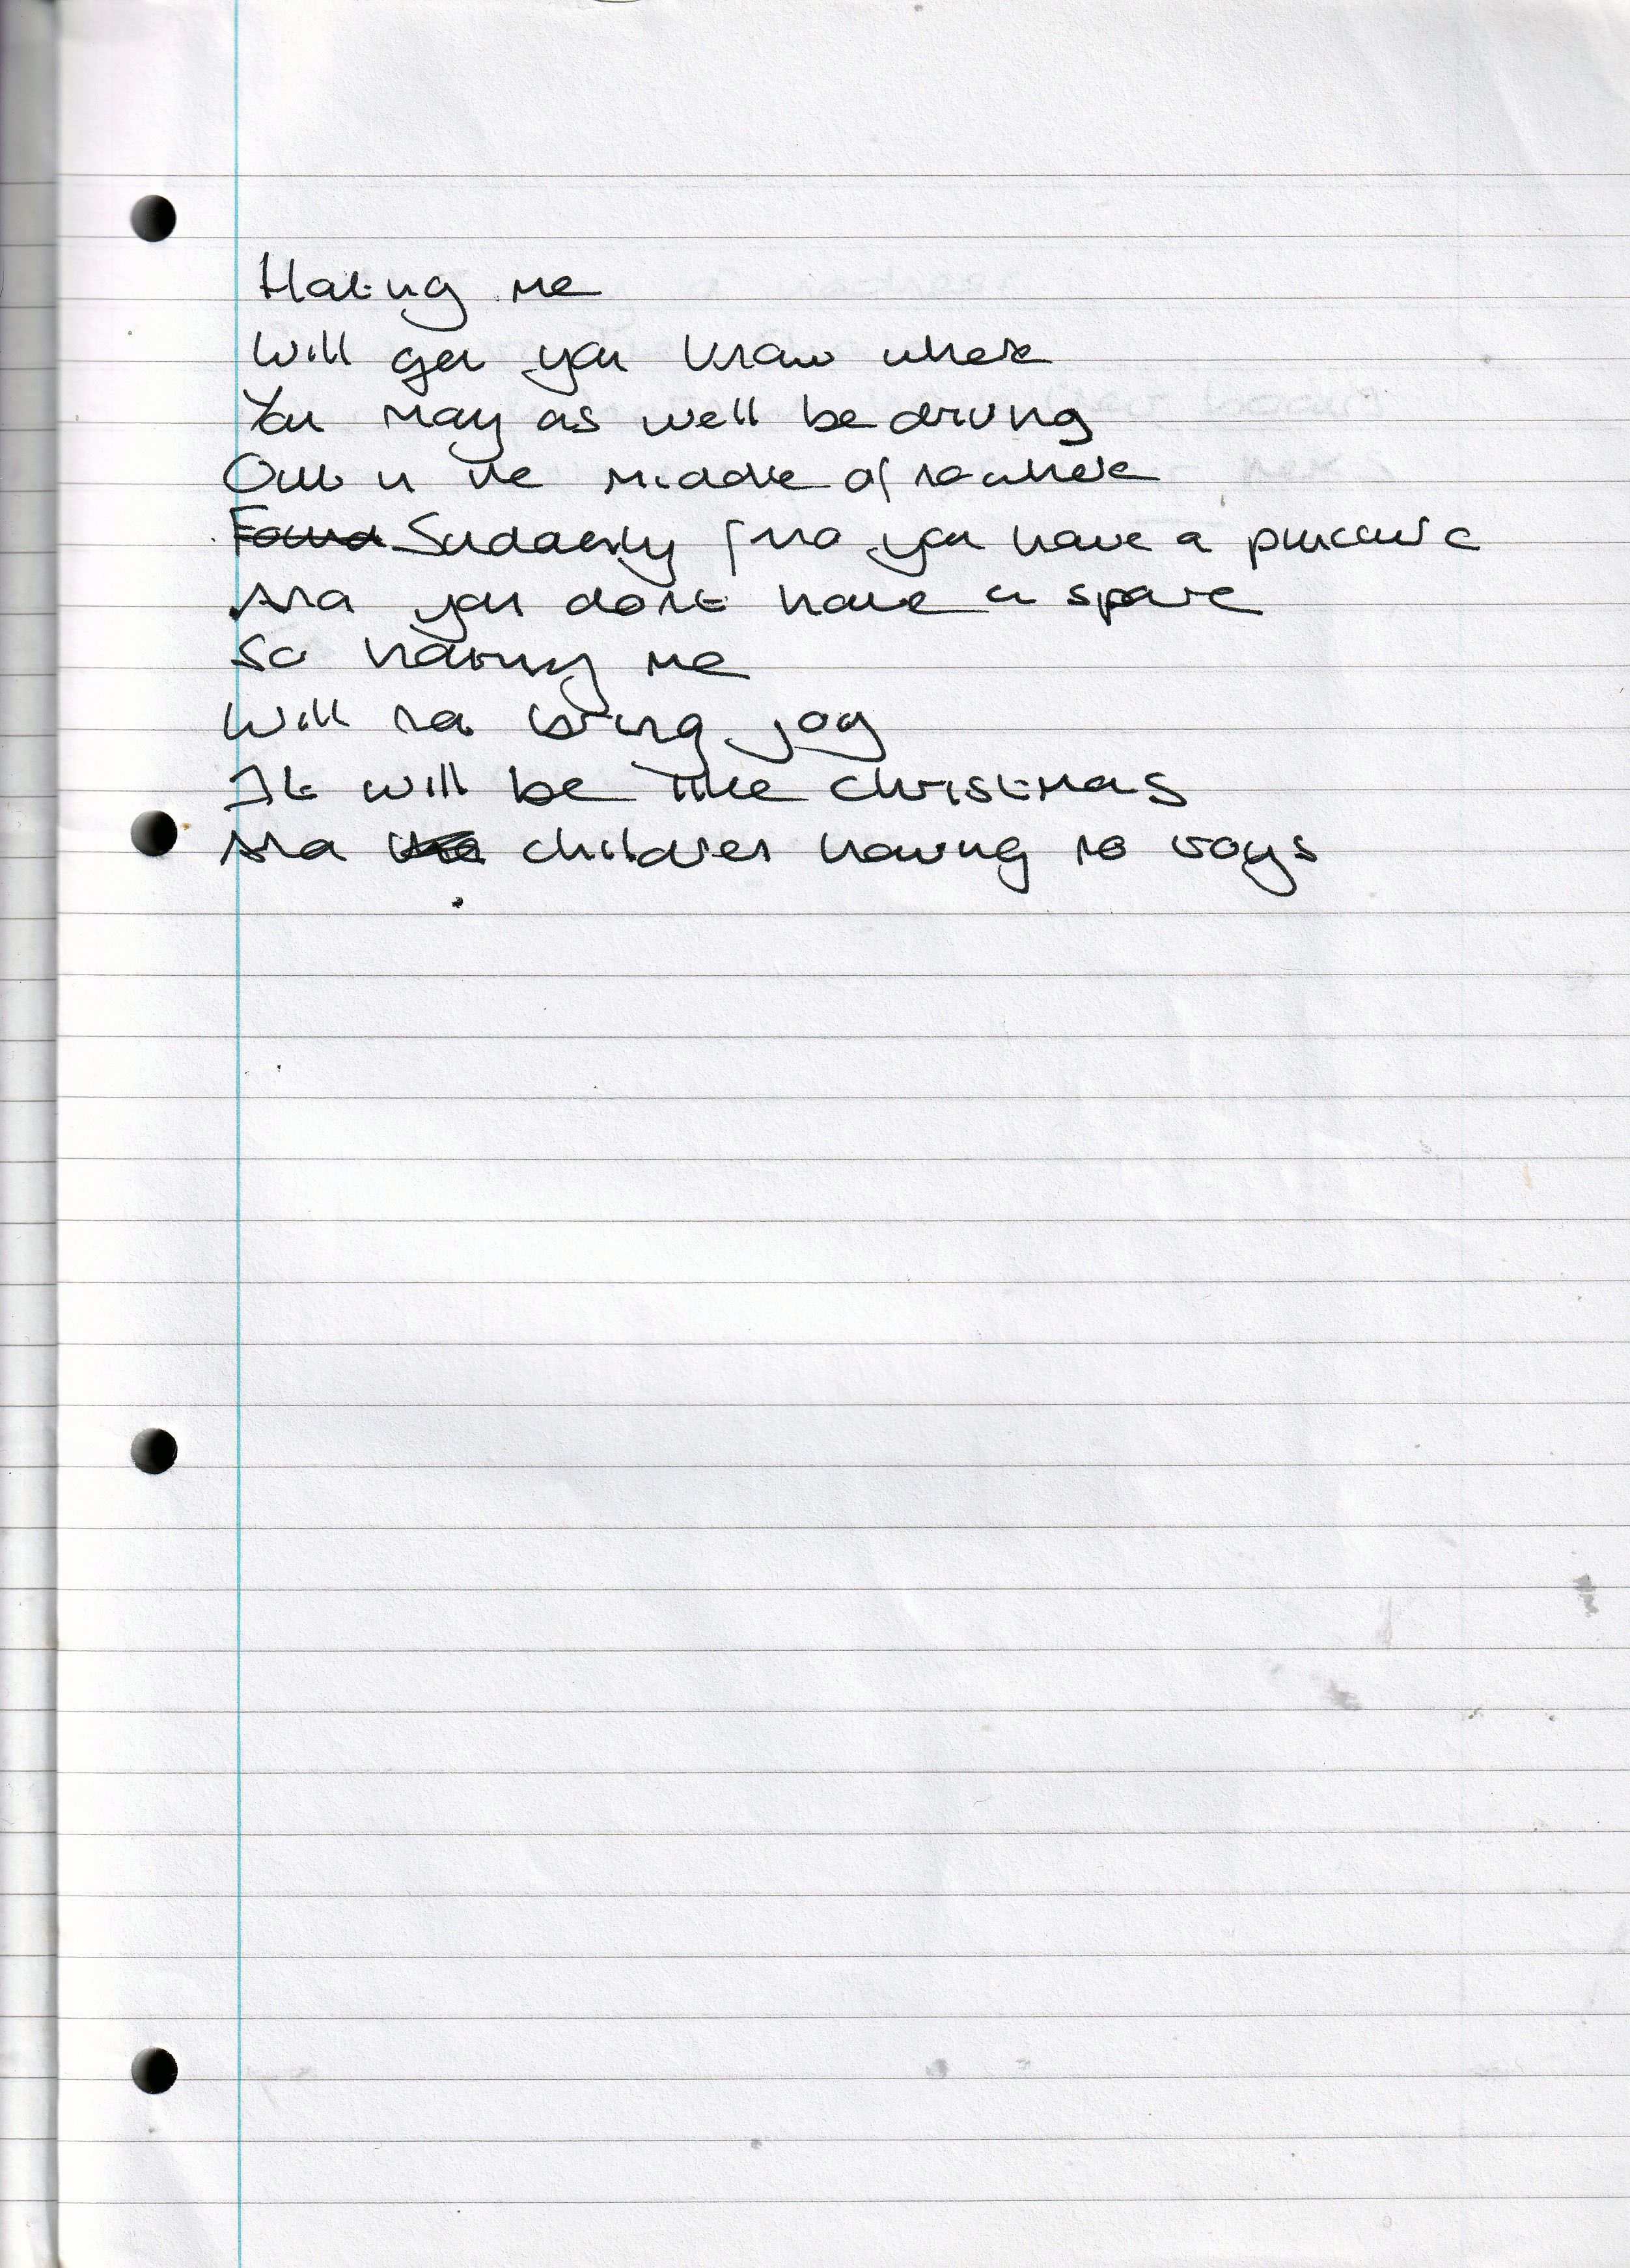 Hating me
Will get you know where
You may as well be driving
Out in the middle of nowhere
Found Suddenly find you have a puncture
And you dont have a spare
So hating me
Will not bring joy
It will be like christmas
And children having no toys